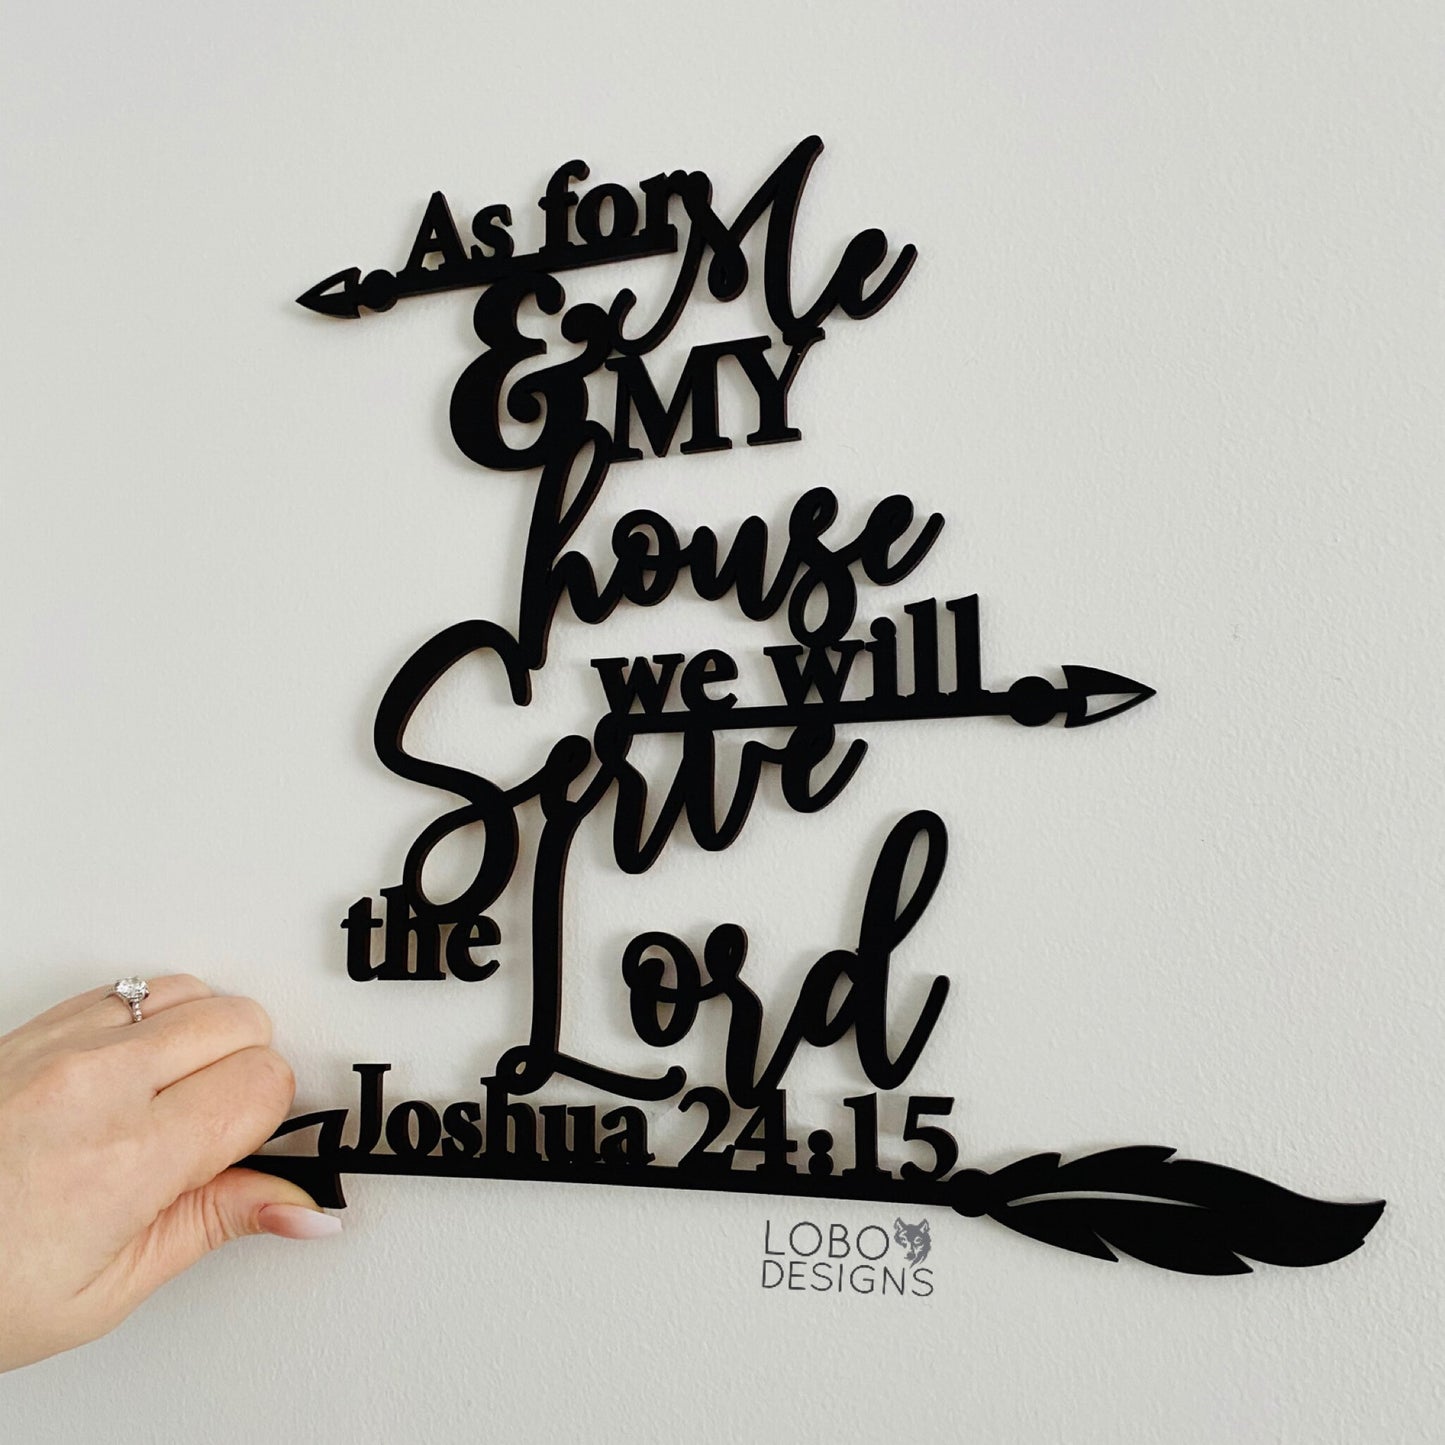 As for Me
& MY
house
we will
Serve
the Lord
Joshua 24:15
LOBO
DESIGNS